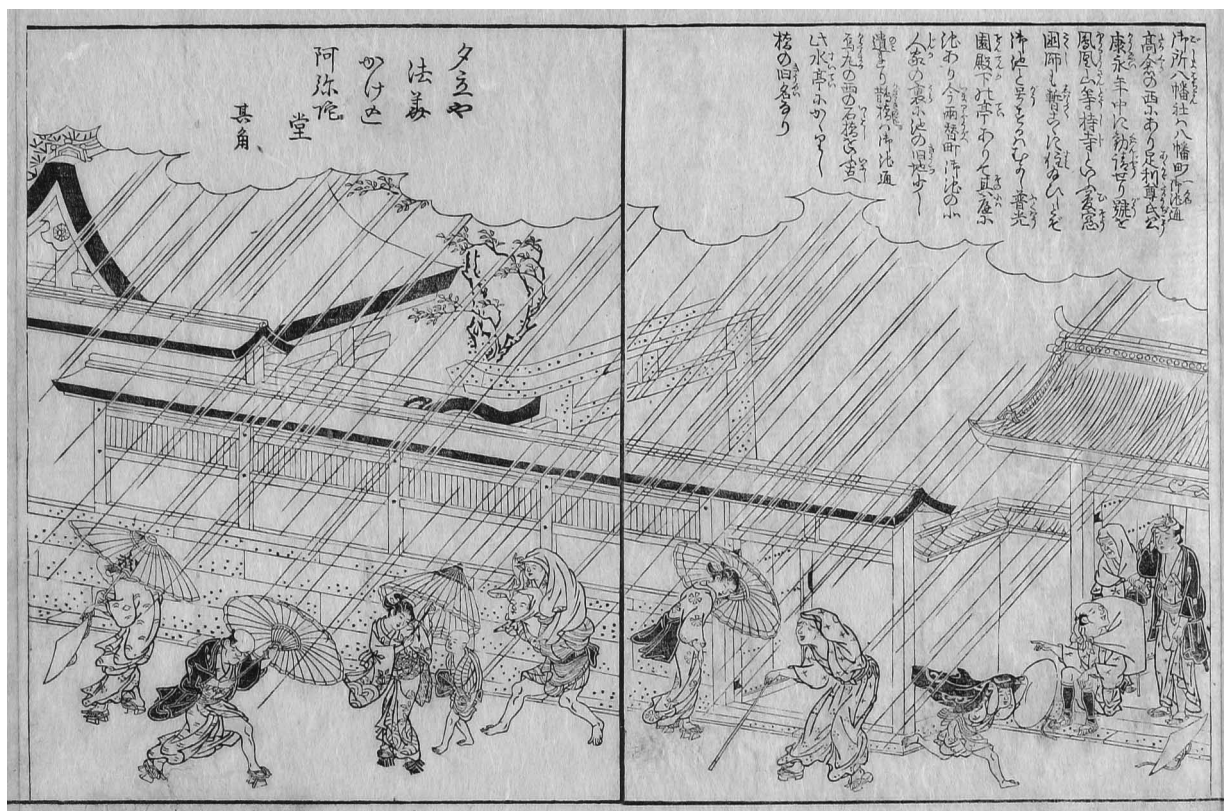 御所八幡社ハ八幡町御池通
高倉の西にあり足利尊氏公
康永年中に勧請せり
鳳凰山等持寺といふ夢窓
国師も暫こゝに住給ひしとぞ
御池と号するハむかし普光
園殿下の亭ありて其庭に
池あり今両替町御池の北
人家の裏に池の旧地少し
遺れり鵲橋ハ御池通
烏丸の西の石橋是也古へ
此水亭にかゝりし
橋の旧名なり
夕立や
法華
かけ込
阿弥陀
堂
其角